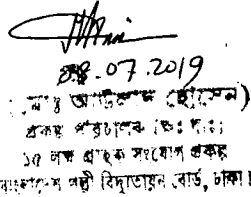 08.07.2019
(মোঃ আউলাদ হোসেন)
প্রকল্প পরিচালক (অঃ দাঃ)
১৫ লক্ষ গ্রাহক সংযোগ প্রকল্প
বাংলাদেশ পল্লী বিদ্যুতায়ন বোর্ড, ঢাকা।